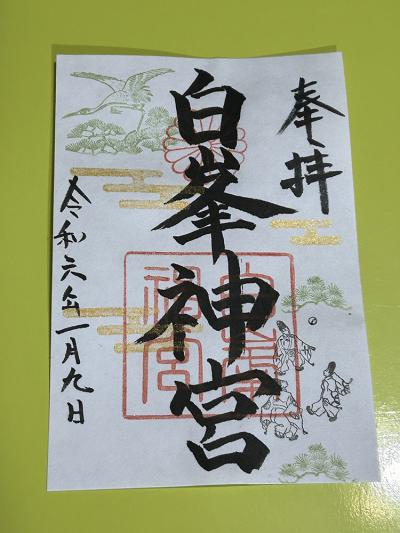 奉拝
白峯神宮
令和六年一月九日